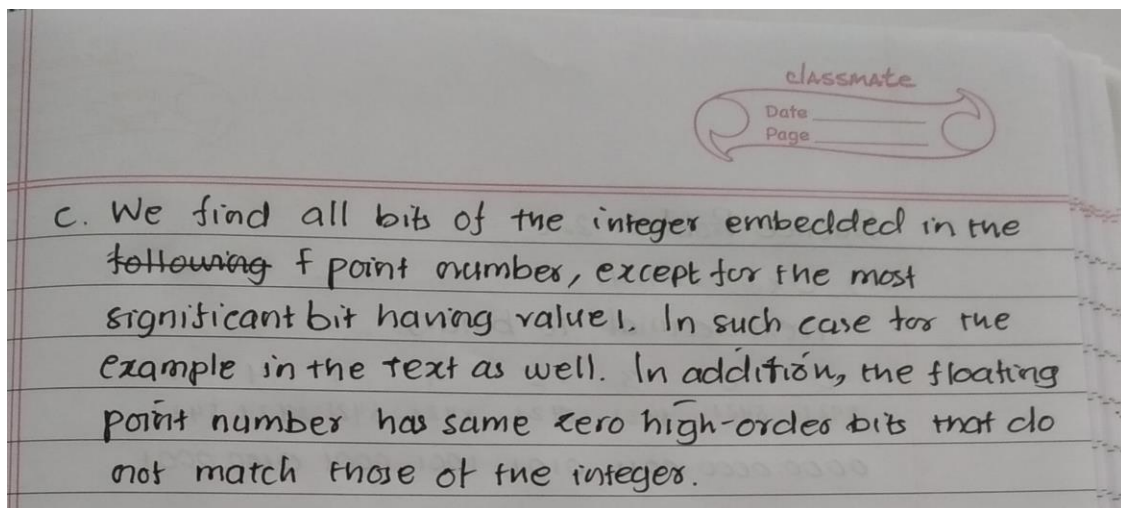 classmate
Date
Page
c. We find all bits of the integer embedded in the
following f point number, except for the most
significant bit having value 1. In such case for the
example in the text as well. In addition, the floating
point number has same zero high-order bits that do
not match those of the integer.